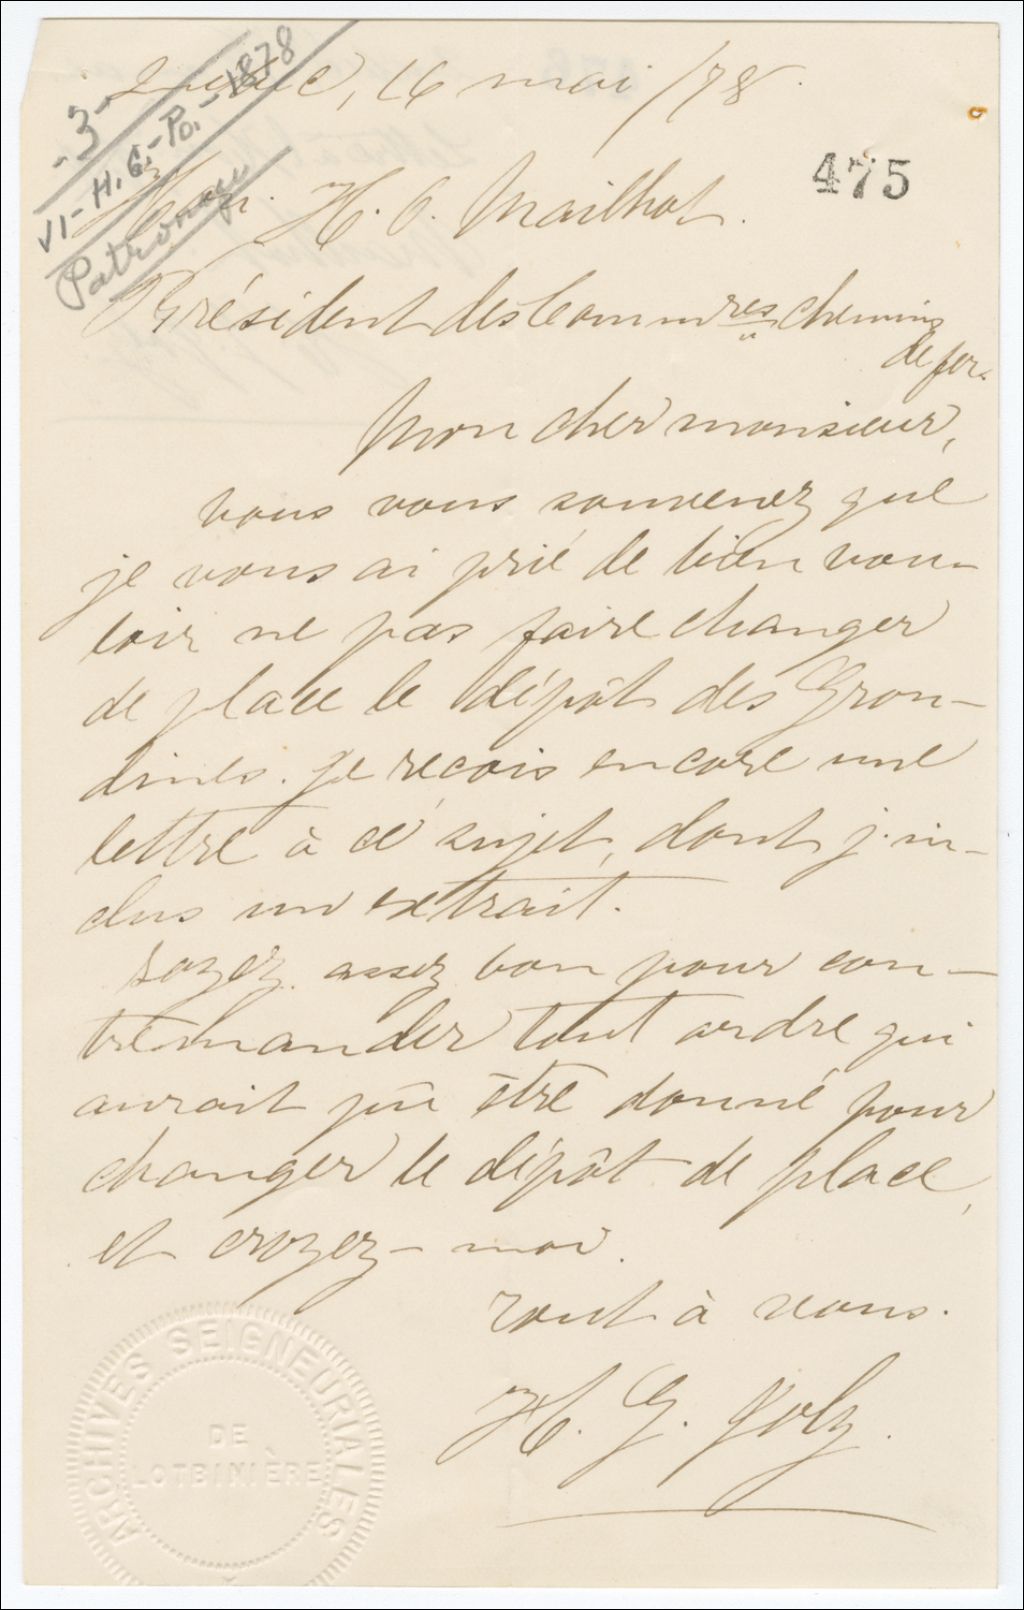 -3-
VI-H.G.-Po.-1878
Patronage
Québec, 16 mai /78.
475
Hon. H. G. Mailhot.
Président des Commres chemins
de fer.
Mon cher monsieur,
vous vous souvenez que
je vous ai prié de bien vou-
loir ne pas faire changer
de place le dépôt des Gron-
dines. Je recois encore une
lettre à cé sujet, dont j'in-
clus un extrait.
soyez assez bon pour con-
tremander tout ordre qui
aurait pû être donné pour
changer le dépôt de place,
et croyez-moi
tout à vous.
H. G. Joly.
ARCHIVES SEIGNEURIALES
DE
LOTBINIÈRE